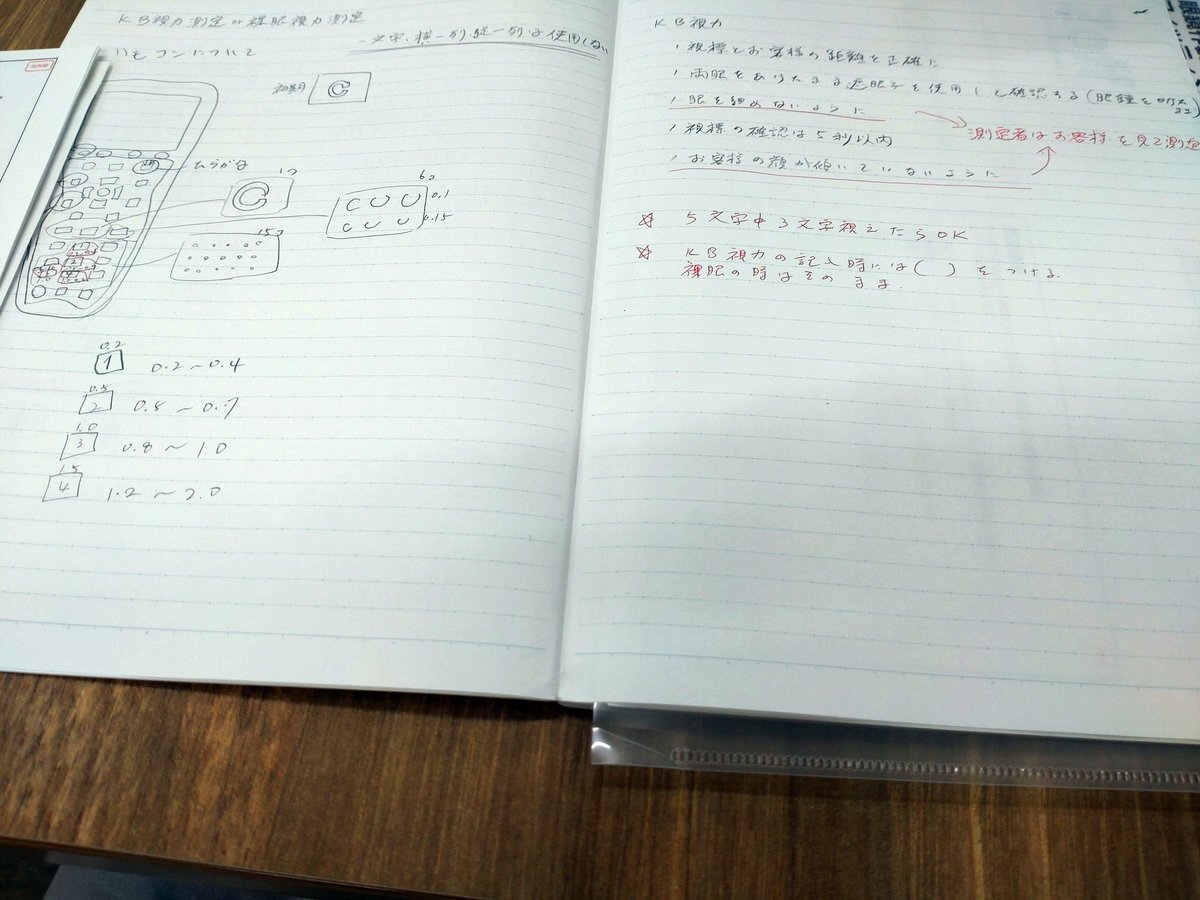 KB視力測定or裸眼視力測定
リモコンについて
一文字、横一列、縦一列は使用しない
初期
C
ひらがな
1コ
C
6コ
C U U
0.1
C U U
0.15
15コ
0.2
1 0.2~0.4
0.5
2 0.5~0.7
1.0
3 0.8~1.0
1.5
4 1.2~2.0
KB視力
視標とお客様の距離を正確に
両眼をあけたまま遮眼子を使用して確認する
眼を細めないように
測定者はお客様を見て測定
視標の確認は5秒以内
お客様の顔が傾いていないように
☆ 5文字中3文字視えたらOK
☆ KB視力の記入時には( )をつける
裸眼の時はそのまま.